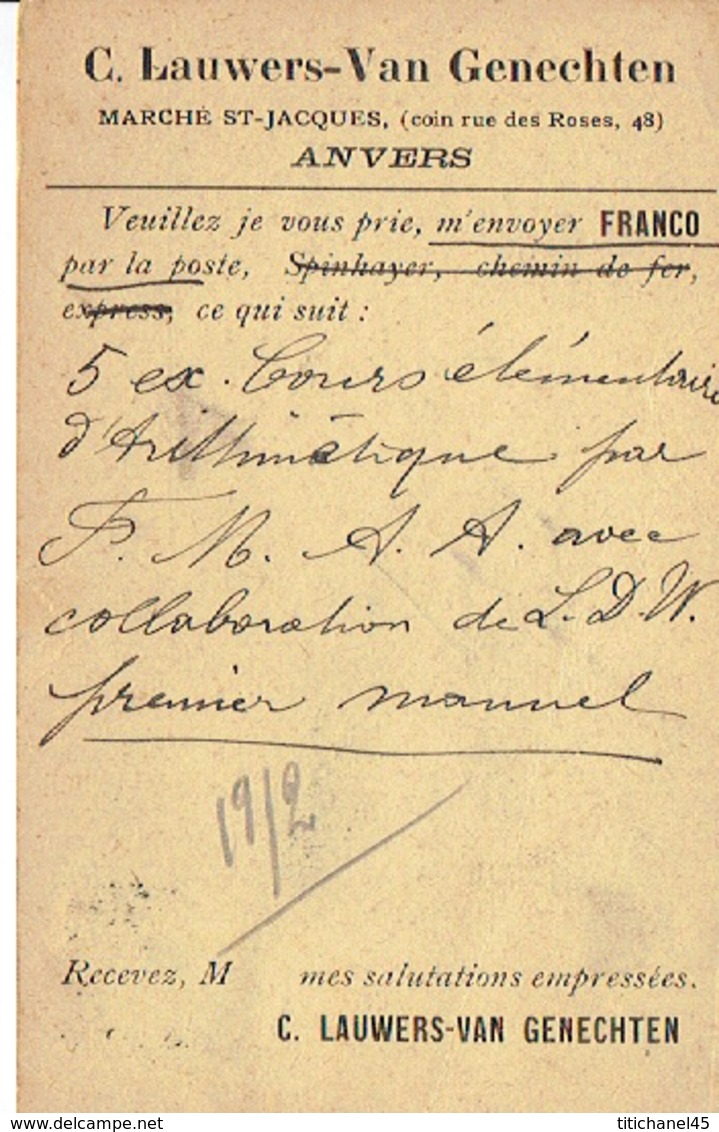 C. Lauwers-Van Genechten
MARCHÉ ST-JACQUES, (coin rue des Roses, 48)
ANVERS
Veuillez je vous prie, m'envoyer FRANCO
par la poste, Spinhayer, chemin de fer,
express, ce qui suit :
5 ex. Cours élémentaire
d'Arithmétique par
F. M. A. A. avec
collaboration de L. D. W.
premier manuel
19/2
Recevez, M mes salutations empressées.
C. LAUWERS-VAN GENECHTEN
titichanel45